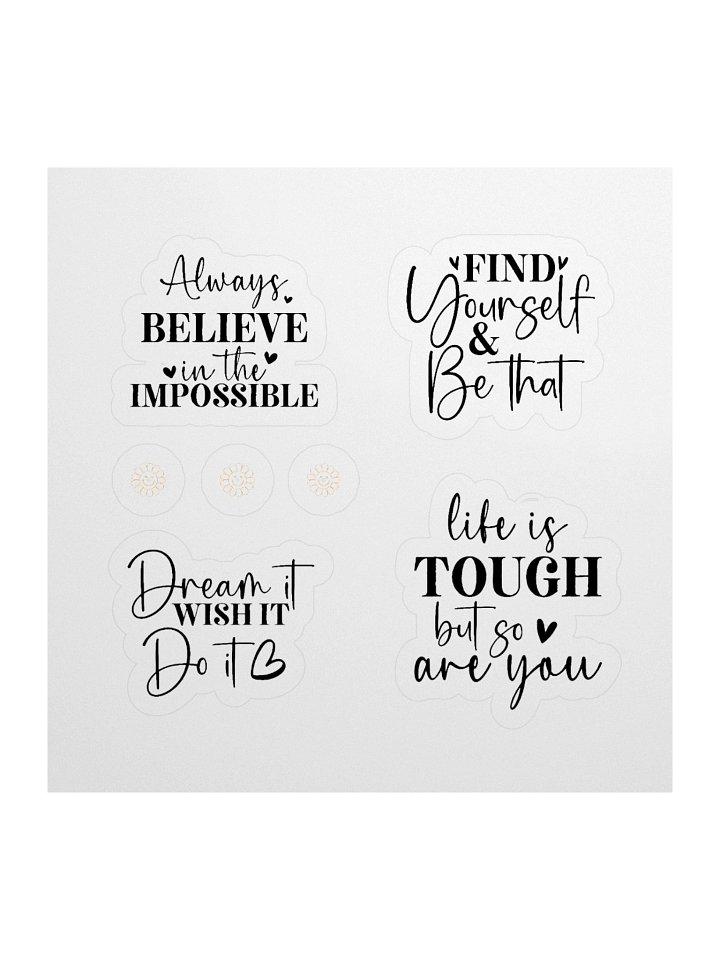 Always
BELIEVE
in the
IMPOSSIBLE
FIND
Yourself
&
Be that
Dream it
WISH IT
Do it
life is
TOUGH
but so
are you